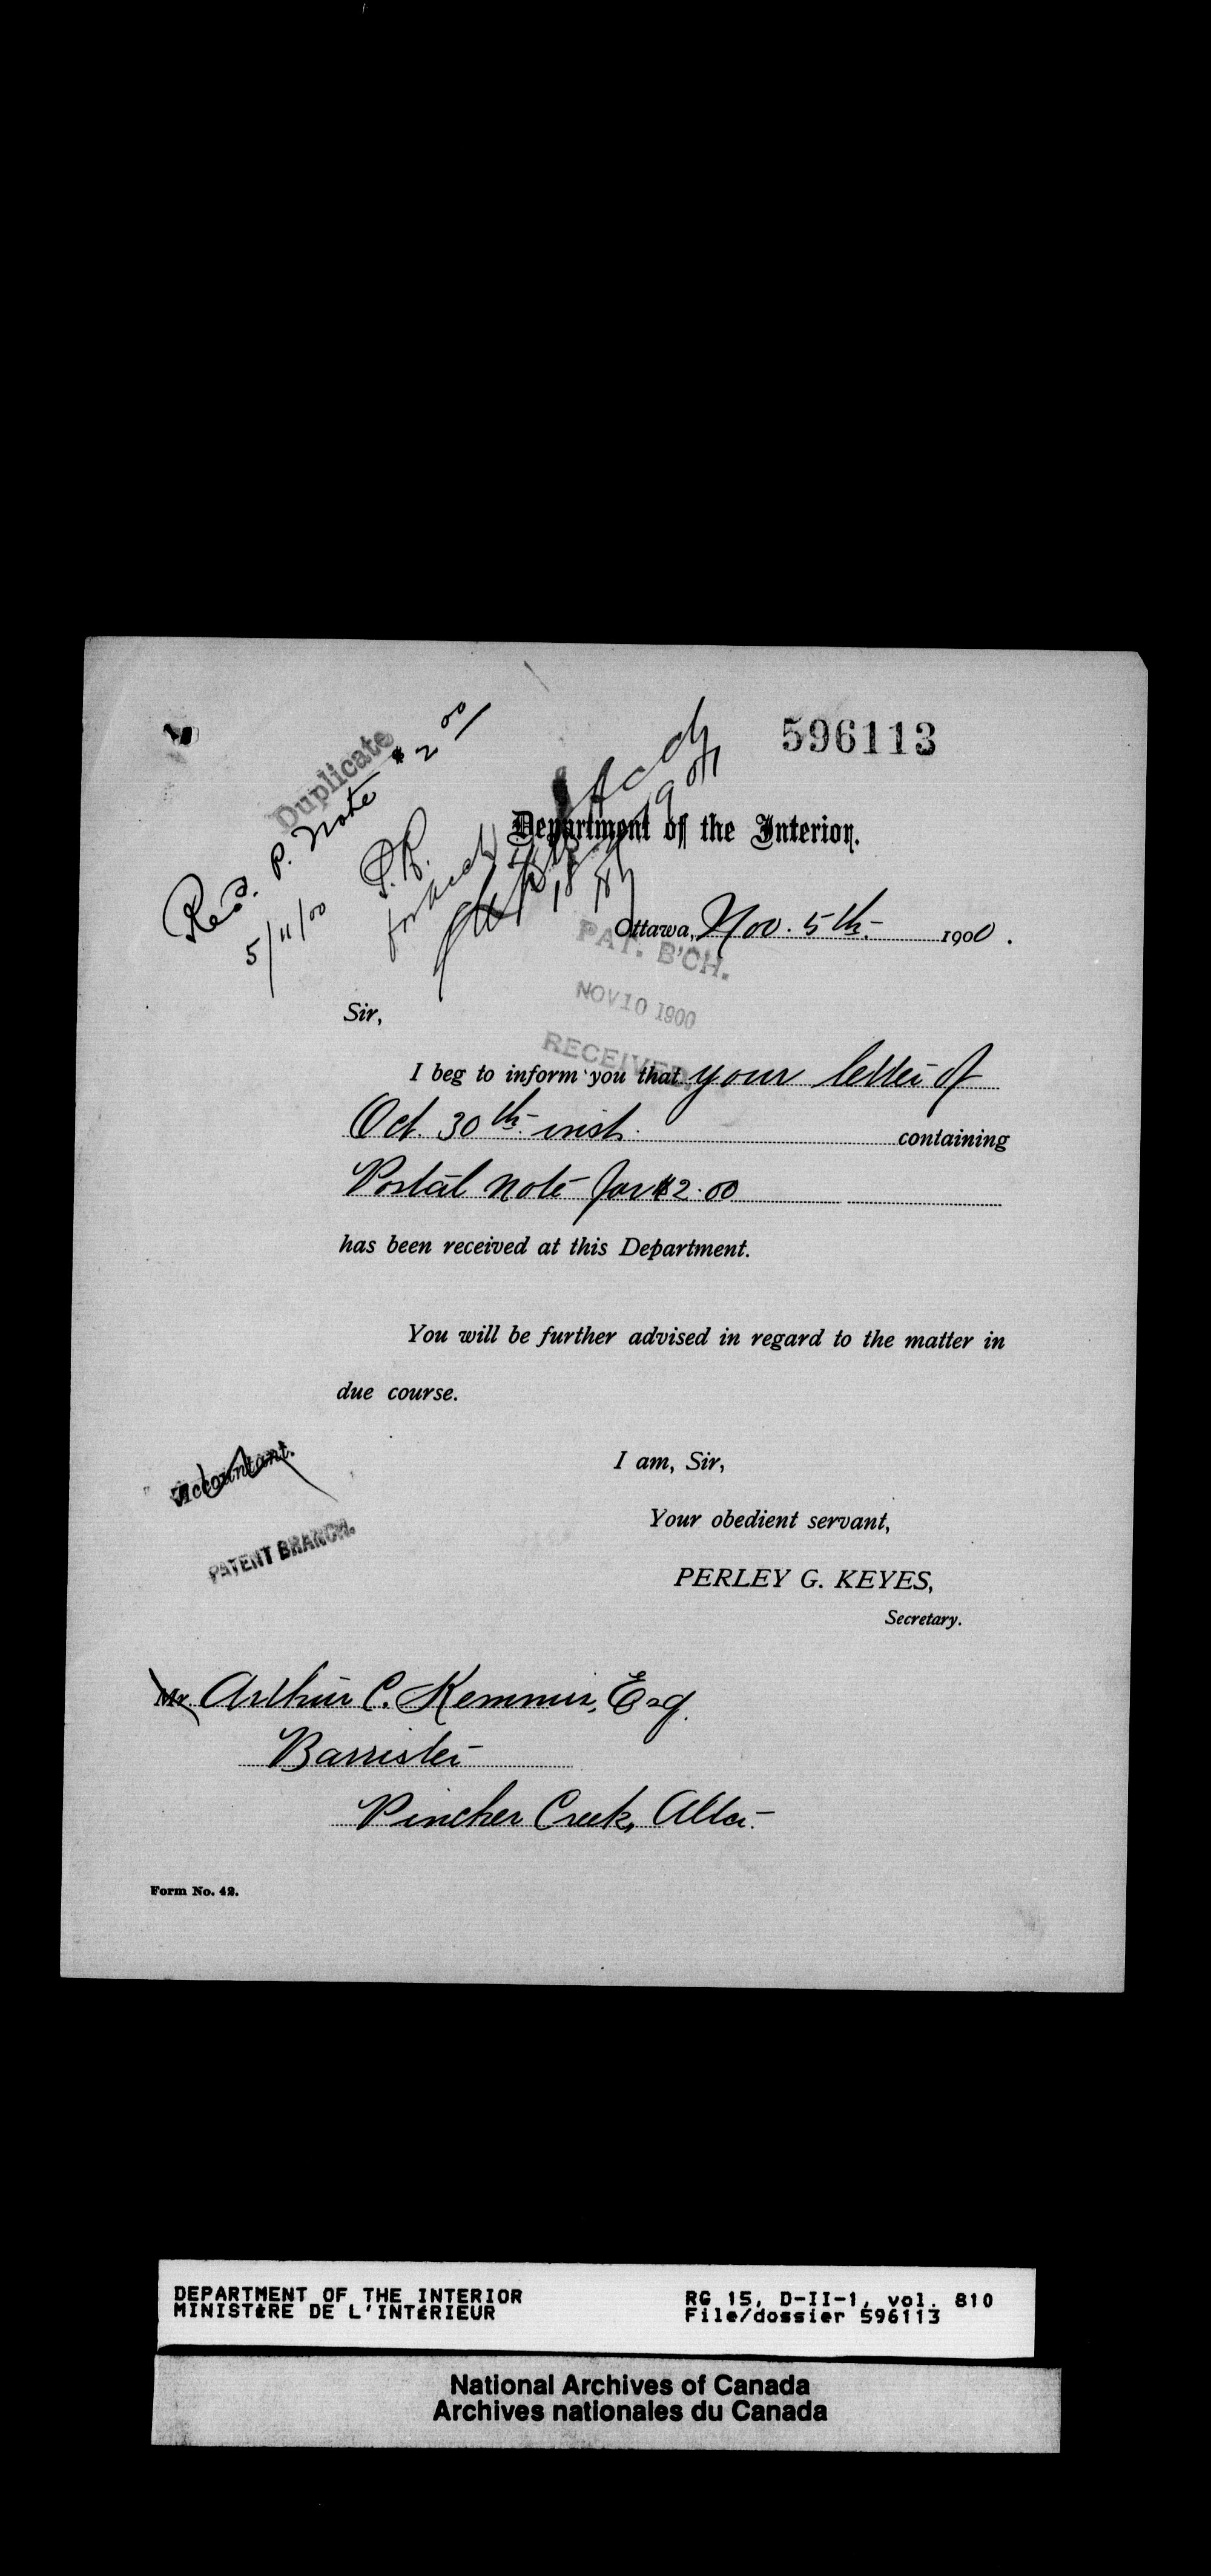 596113
Duplicate
Recd. P. Note $2 00
5/11/00
P.R.
Department of the Interior.
Ottawa, Nov. 5th 1900.
PAT. B'CH.
NOV 10 1900
RECEIVED
Sir,
I beg to inform you that your letter of
Oct. 30th inst. containing
Postal note for $2.00
has been received at this Department.
You will be further advised in regard to the matter in
due course.
I am, Sir,
Your obedient servant,
PERLEY G. KEYES,
Secretary.
Accountant.
PATENT BRANCH.
Mr. Arthur C. Kemmis, Esq.
Barrister
Pincher Creek, Alta.
Form No. 42.
DEPARTMENT OF THE INTERIOR
MINISTÈRE DE L'INTÉRIEUR
RG 15, D-II-1, vol. 810
File/dossier 596113
National Archives of Canada
Archives nationales du Canada